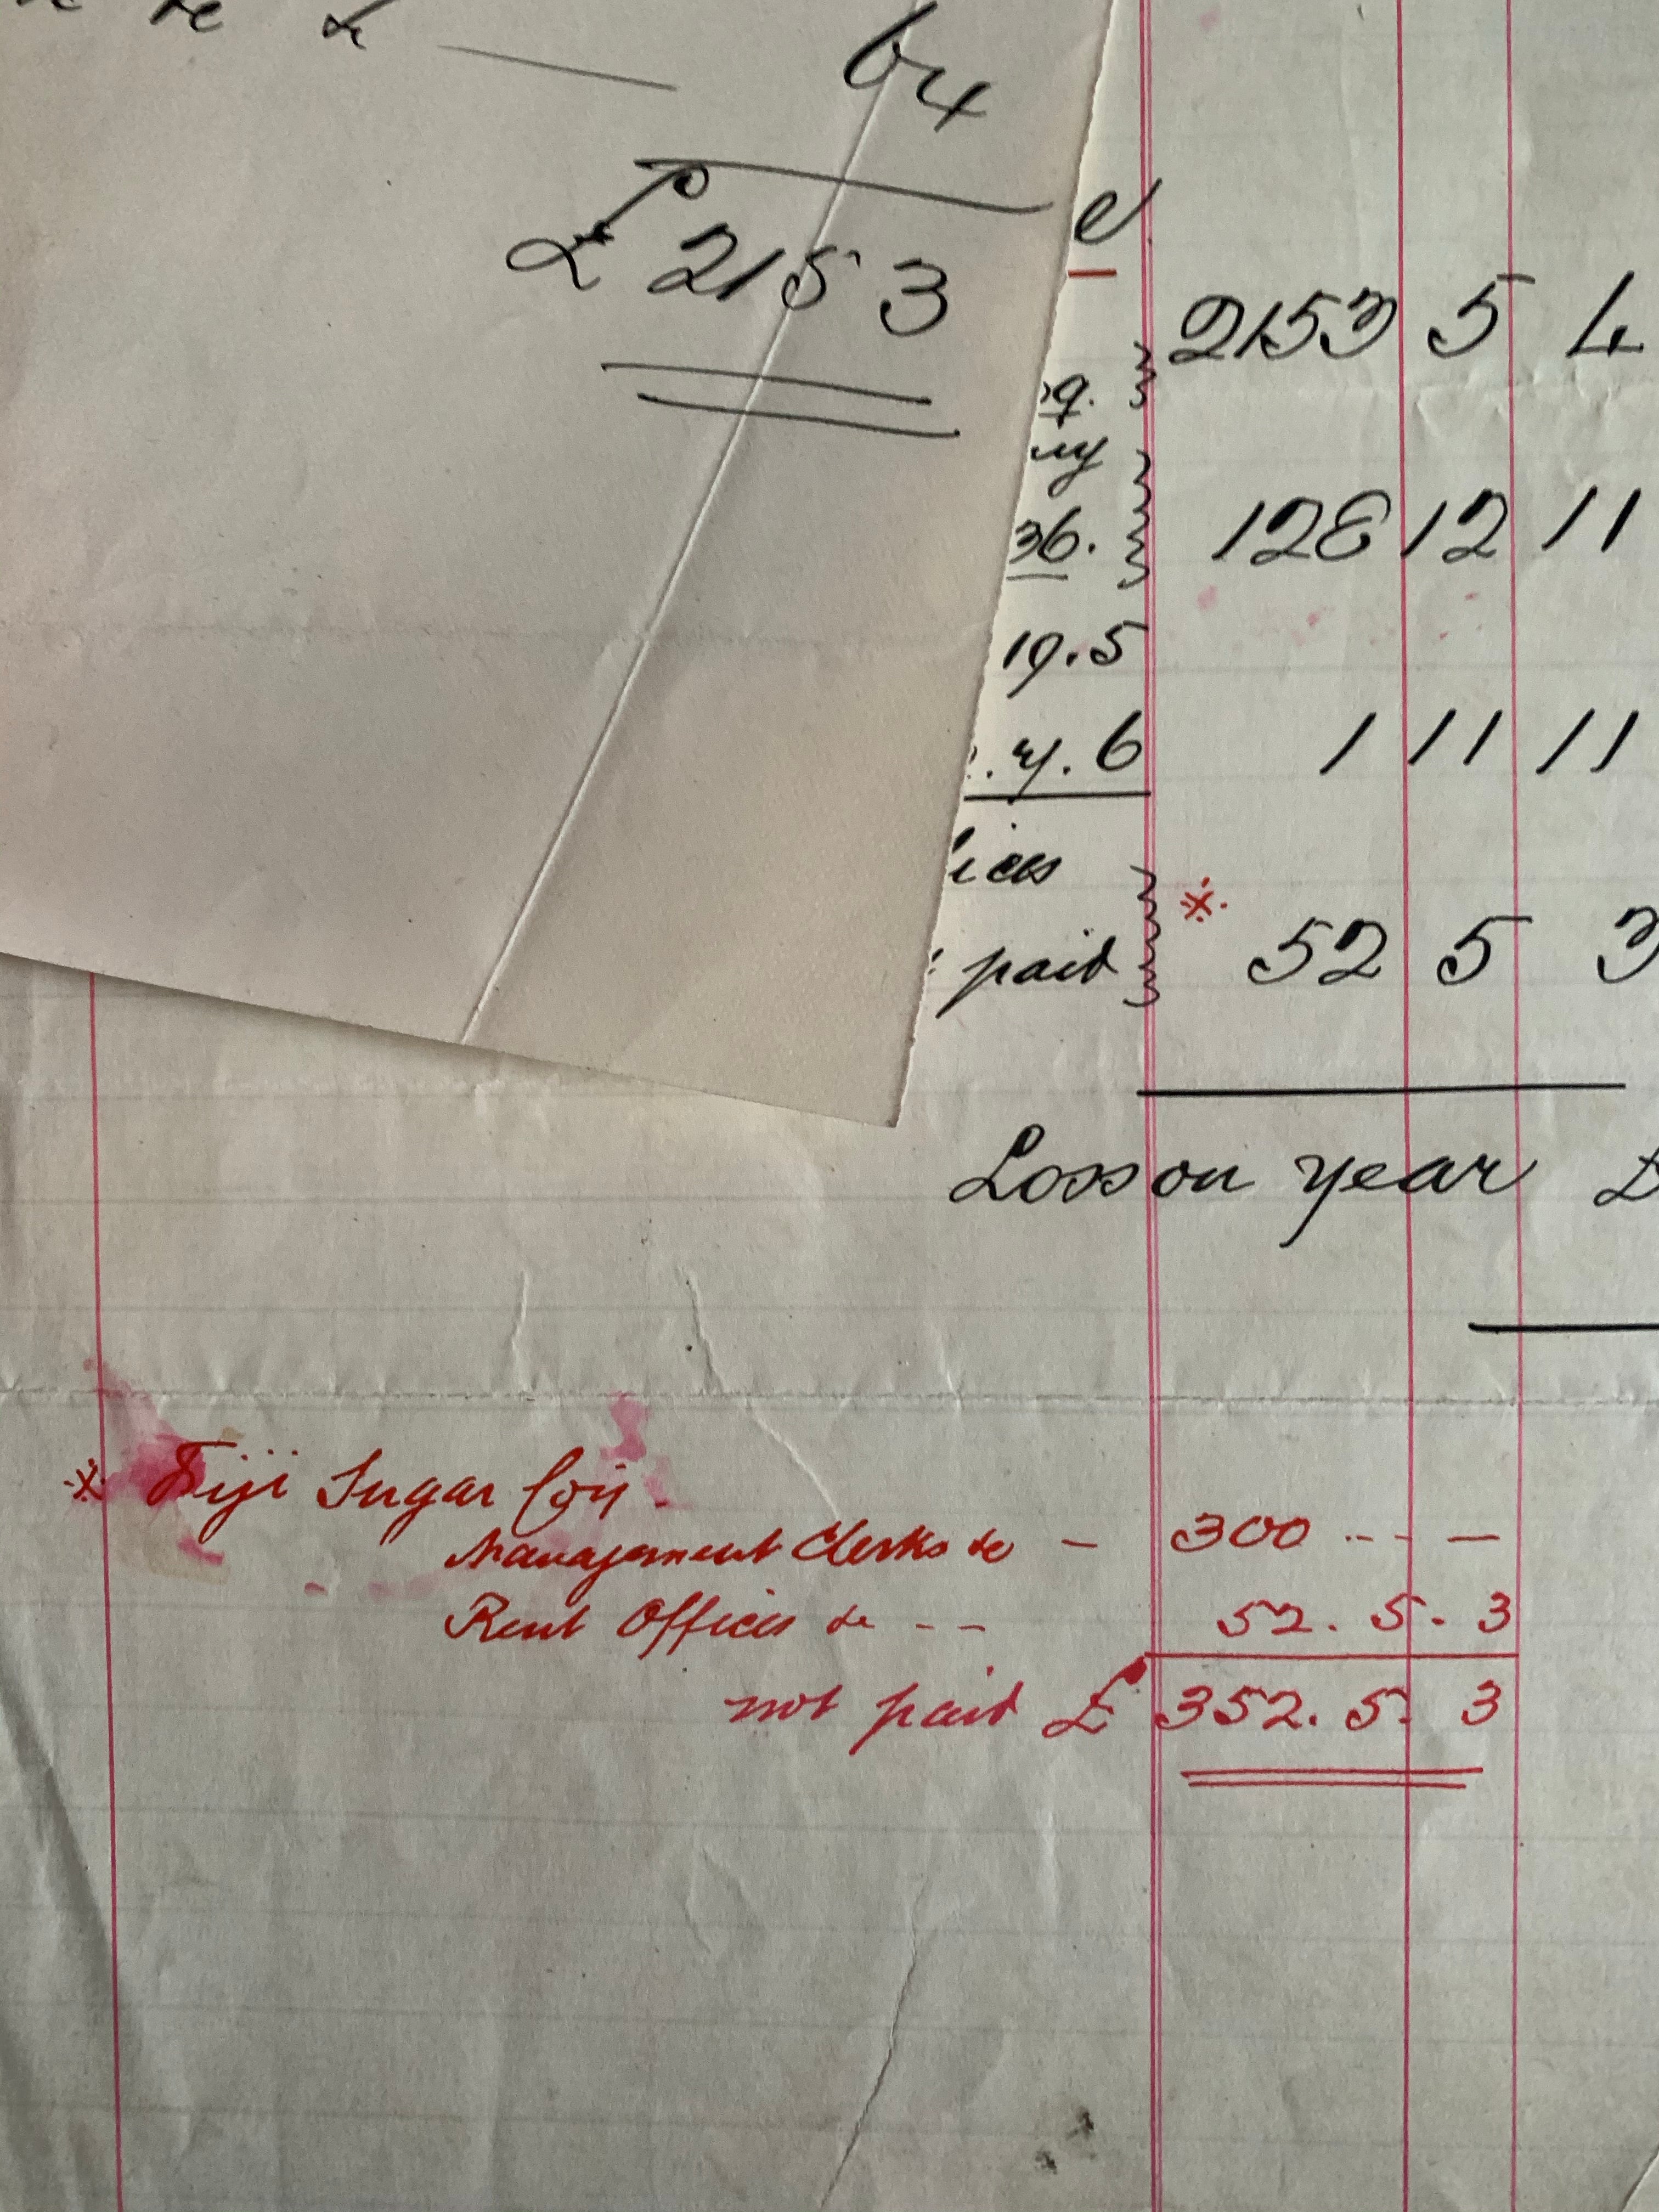 64
£ 2153
2153 5 4
128 12 11
36.
19.5
6
1 11 11
paid
※. 52 5 3
Loss on year £
※ Fiji Sugar Coy.
Management Clerks &c - 300 -- - —
Rent Offices &c -- 52. 5. 3
not paid £ 352. 5. 3